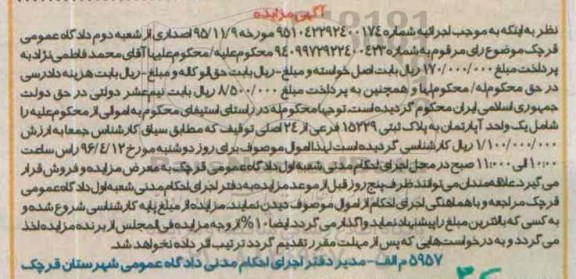 آگهی مزایده
نظر به اینکه به موجب اجرائیه شماره ۹۵۱۰۴۲۲۹۲۴۰۰۱۷۴ مورخه ۹۵/۱۱/۹ اصداری از شعبه دوم دادگاه عمومی
قرچک موضوع رای مرقوم به شماره ۹۴۰۹۹۷۲۹۲۲۴۰۰۴۲۳ محکوم علیه/محکوم علیها آقای محمد فاطمی نژاد به
پرداخت مبلغ ۱۷۰/۰۰۰/۰۰۰ ریال بابت اصل خواسته و مبلغ - ریال بابت حق الوکاله و مبلغ - ریال بابت هزینه دادرسی
در حق محکوم له/ محکوم لها و همچنین به پرداخت مبلغ ۸/۵۰۰/۰۰۰ ریال بابت نیم عشر دولتی در حق دولت
جمهوری اسلامی ایران محکوم گردیده است، توجها محکوم له در راستای استیفای محکوم به اموالی از محکوم علیه را
شامل یک واحد آپارتمان به پلاک ثبتی ۱۵۲۲۹ فرعی از ۲۴ اصلی توقیف که مطابق سیاق کارشناس جمعا به ارزش
۱/۱۰۰/۰۰۰/۰۰۰ ریال کارشناسی گردیده است، لذا اموال موصوف برای روز دوشنبه مورخ ۹۶/۴/۱۲ راس ساعت
۱۰:۰۰ الی ۱۱:۰۰ صبح در محل اجرای احکام مدنی شعبه اول دادگاه عمومی قرچک به معرض مزایده و فروش قرار
می گیرد علاقه مندان می توانند ظرف پنج روز قبل از موعد مزایده به دفتر اجرای احکام مدنی شعبه اول دادگاه عمومی
قرچک مراجعه و با هماهنگی اجرای احکام از اموال موصوف دیدن نمایند. مزایده از مبلغ پایه کارشناسی شروع شده و
به کسی که بالاترین مبلغ را پیشنهاد نماید واگذار می گردد ایضا ۱۰% از وجه مزایده فی المجلس از برنده مزایده اخذ
می گردد و به درخواست هایی که پس از مهلت مقرر تقدیم گردد ترتیب اثر داده نخواهد شد.
۵۹۵۷ م الف - مدیر دفتر اجرای احکام مدنی دادگاه عمومی شهرستان قرچک